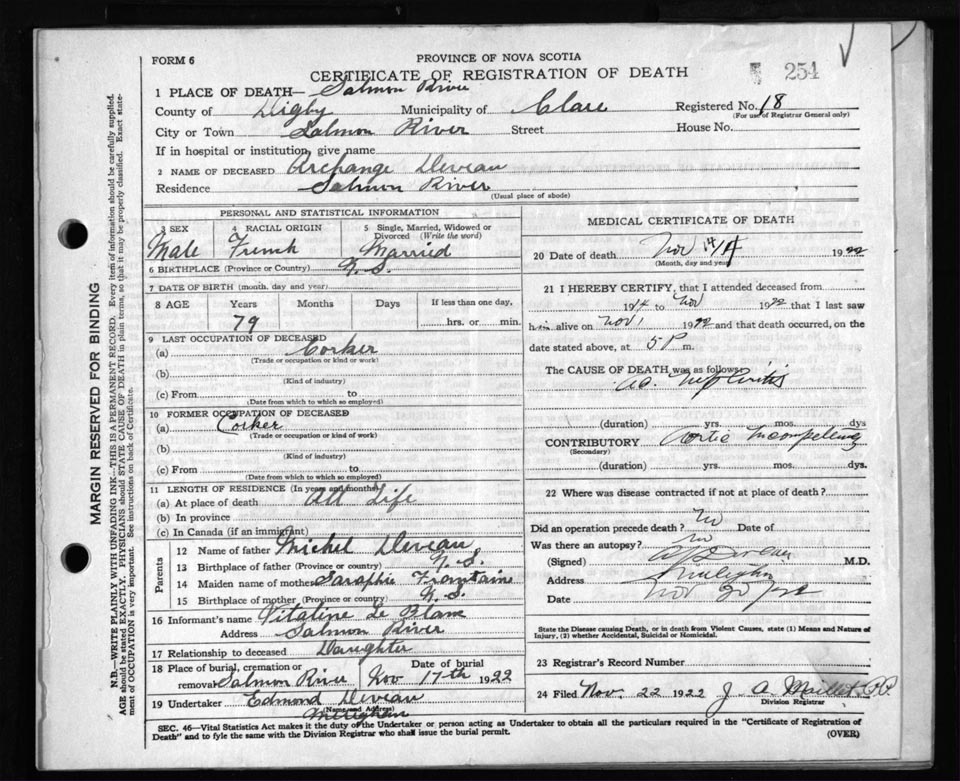 FORM 6
PROVINCE OF NOVA SCOTIA
254
CERTIFICATE OF REGISTRATION OF DEATH
1 PLACE OF DEATH— Salmon River
County of Digby Municipality of Clare Registered No. 18
(For use of Registrar General only)
City or Town Salmon River Street House No.
If in hospital or institution, give name
2 NAME OF DECEASED Archange Deveau
Residence Salmon River
(Usual place of abode)
MARGIN RESERVED FOR BINDING
N.B.—WRITE PLAINLY WITH UNFADING INK—THIS IS A PERMANENT RECORD. Every item of information should be carefully supplied.
AGE should be stated EXACTLY. PHYSICIANS should STATE CAUSE OF DEATH in plain terms, so that it may be properly classified. Exact state-
ment of OCCUPATION is very important. See instructions on back of Certificate.
PERSONAL AND STATISTICAL INFORMATION
3 SEX 4 RACIAL ORIGIN 5 Single, Married, Widowed or
Divorced (Write the word)
Male French Married
6 BIRTHPLACE (Province or Country) N. S.
7 DATE OF BIRTH (month, day and year)
8 AGE Years Months Days If less than one day,
79 hrs. or min.
9 LAST OCCUPATION OF DECEASED
(a) Corker
(Trade or occupation or kind or work)
(b)
(Kind of industry)
(c) From to
(Date from which to which so employed)
10 FORMER OCCUPATION OF DECEASED
(a) Corker
(Trade or occupation or kind of work)
(b)
(Kind of industry)
(c) From to
(Date from which to which so employed)
11 LENGTH OF RESIDENCE (In years and months)
(a) At place of death All Life
(b) In province
(c) In Canada (if an immigrant)
Parents
12 Name of father Michel Deveau
13 Birthplace of father (Province or country) N. S.
14 Maiden name of mother Saraphie
15 Birthplace of mother (Province or country) N. S.
16 Informant's name Vitaline Le Blanc
Address Salmon River
17 Relationship to deceased Daughter
18 Place of burial, cremation or removal Salmon River Date of burial Nov 17th 1922
19 Undertaker Edmond Deveau
(Name and Address)
Meteghan
MEDICAL CERTIFICATE OF DEATH
20 Date of death Nov 14 1922
(Month, day and year)
21 I HEREBY CERTIFY, that I attended deceased from
19 to Nov 1922 that I last saw
him alive on Nov 1 1922 and that death occurred, on the
date stated above, at 5 P m.
The CAUSE OF DEATH was as follows:
Ac. Nephritis
(duration) yrs. mos. dys
CONTRIBUTORY Aortic Incompetency
(Secondary)
(duration) yrs. mos. dys.
22 Where was disease contracted if not at place of death?
Did an operation precede death? No Date of
Was there an autopsy? No
(Signed) M.D.
Address
Date Nov 20
State the Disease causing Death, or in death from Violent Causes, state (1) Means and Nature of
Injury, (2) whether Accidental, Suicidal or Homicidal.
23 Registrar's Record Number
24 Filed Nov. 22 1922 J. A. Maillet P.P.
Division Registrar
SEC. 46—Vital Statistics Act makes it the duty of the Undertaker or person acting as Undertaker to obtain all the particulars required in the "Certificate of Registration of
Death" and to fyle the same with the Division Registrar who shall issue the burial permit.
(OVER)